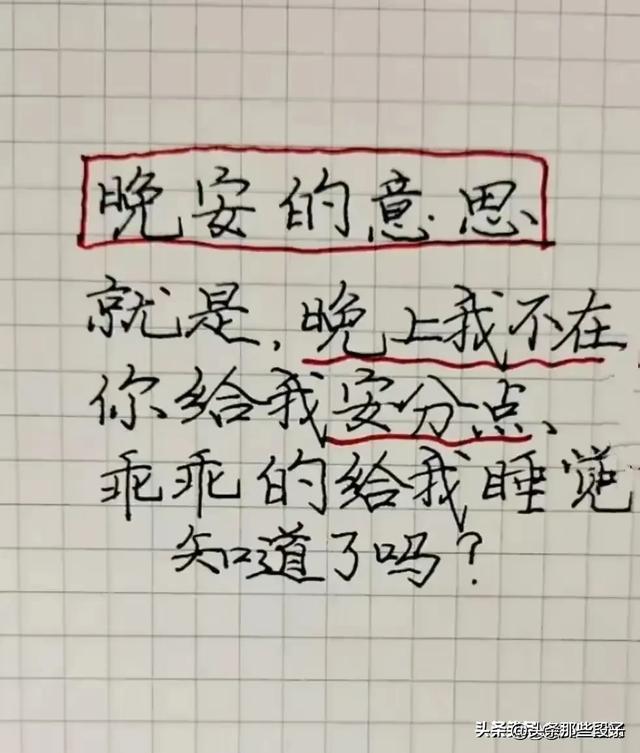 晚安的意思
就是,晚上我不在
你给我安分点、
乖乖的给我睡觉
知道了吗?